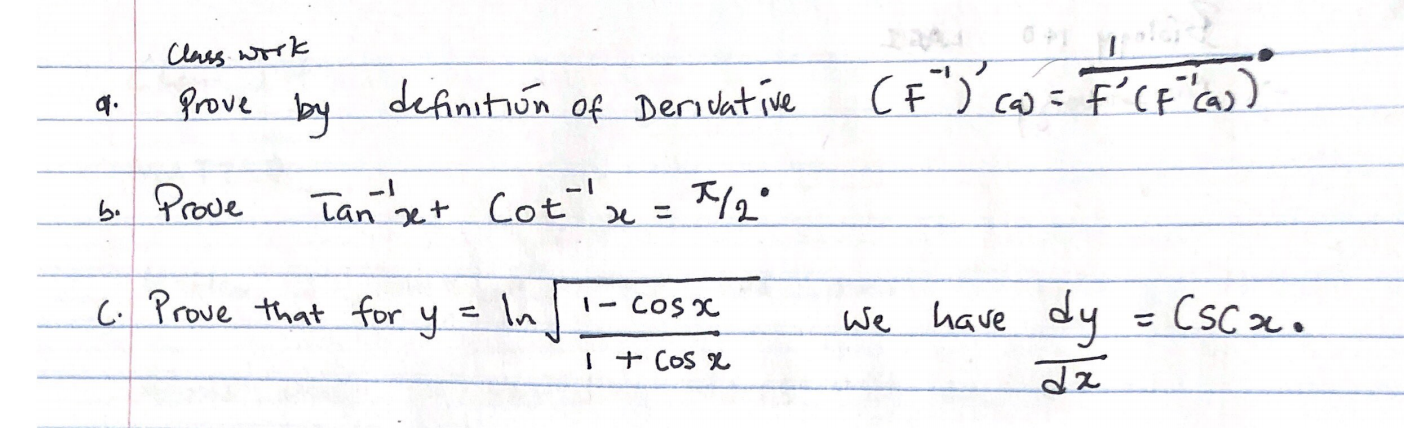 Class work
a. Prove by definition of Derivative (F⁻¹)'(a) = 1/F'(F⁻¹(a)).
b. Prove Tan⁻¹x + Cot⁻¹x = π/2.
c. Prove that for y = ln √((1 - cos x)/(1 + cos x)) we have dy/dx = CSC x.